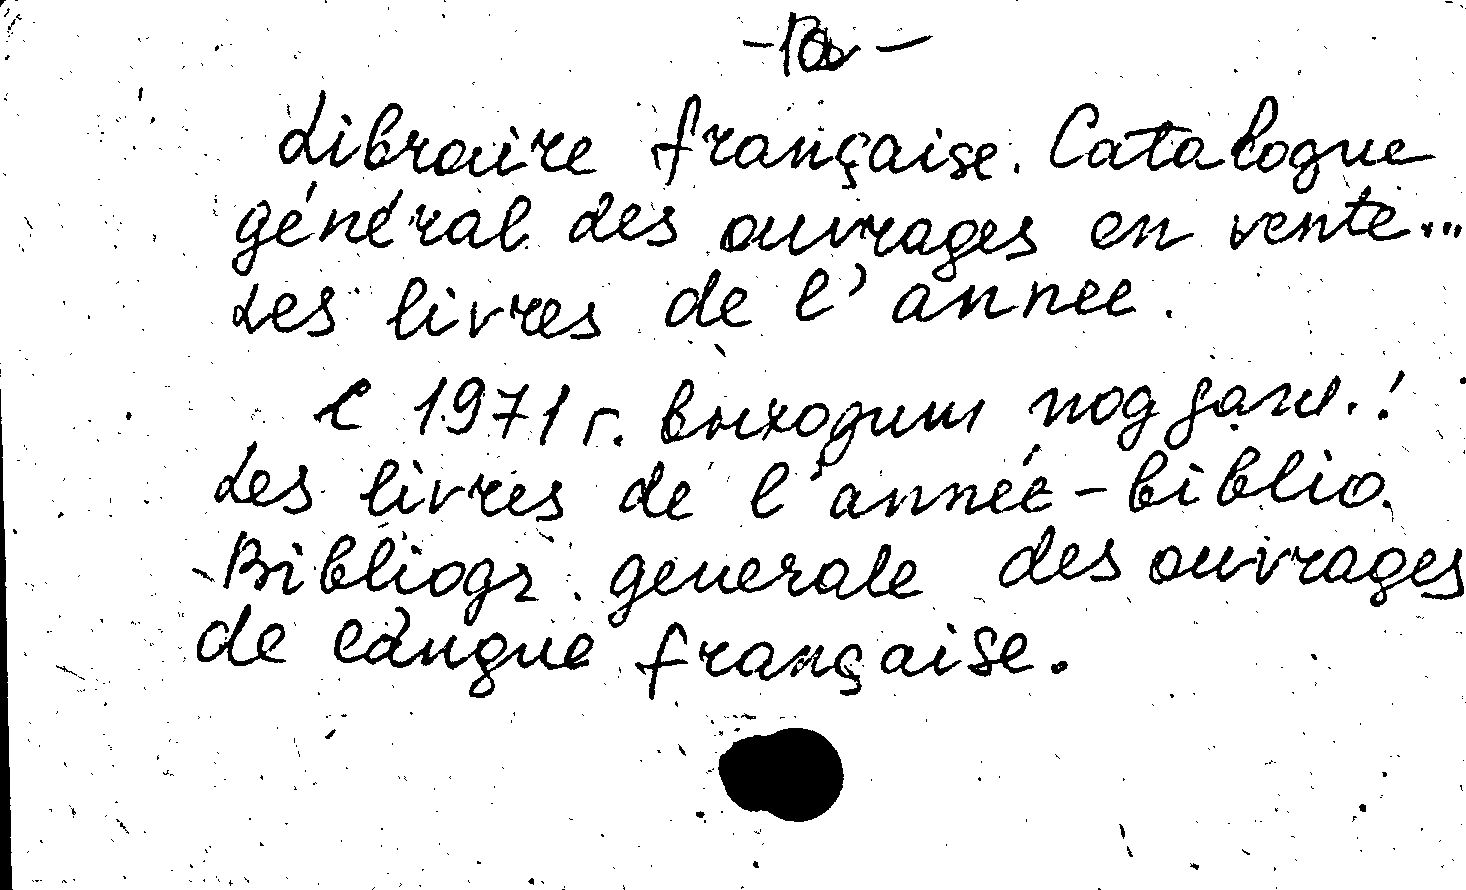 Libraire française. Catalogue
général des ouvrages en vente...
Les livres de l'annee.
С 1971 г. выходит под загл.:
Les livres de l'année-biblio.
Bibliogr. generale des ouvrages
de langue française.